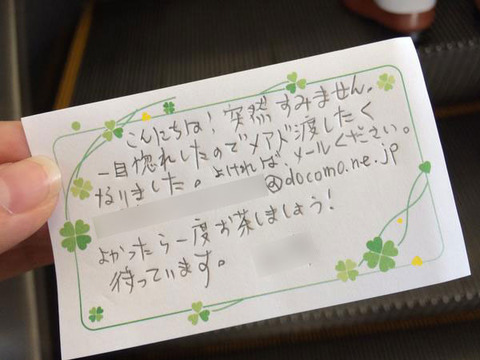 こんにちは！突然すみません。
一目惚れしたのでメアド渡したく
なりました。よければ、メールください。
@docomo.ne.jp
よかったら一度お茶しましょう！
待っています。